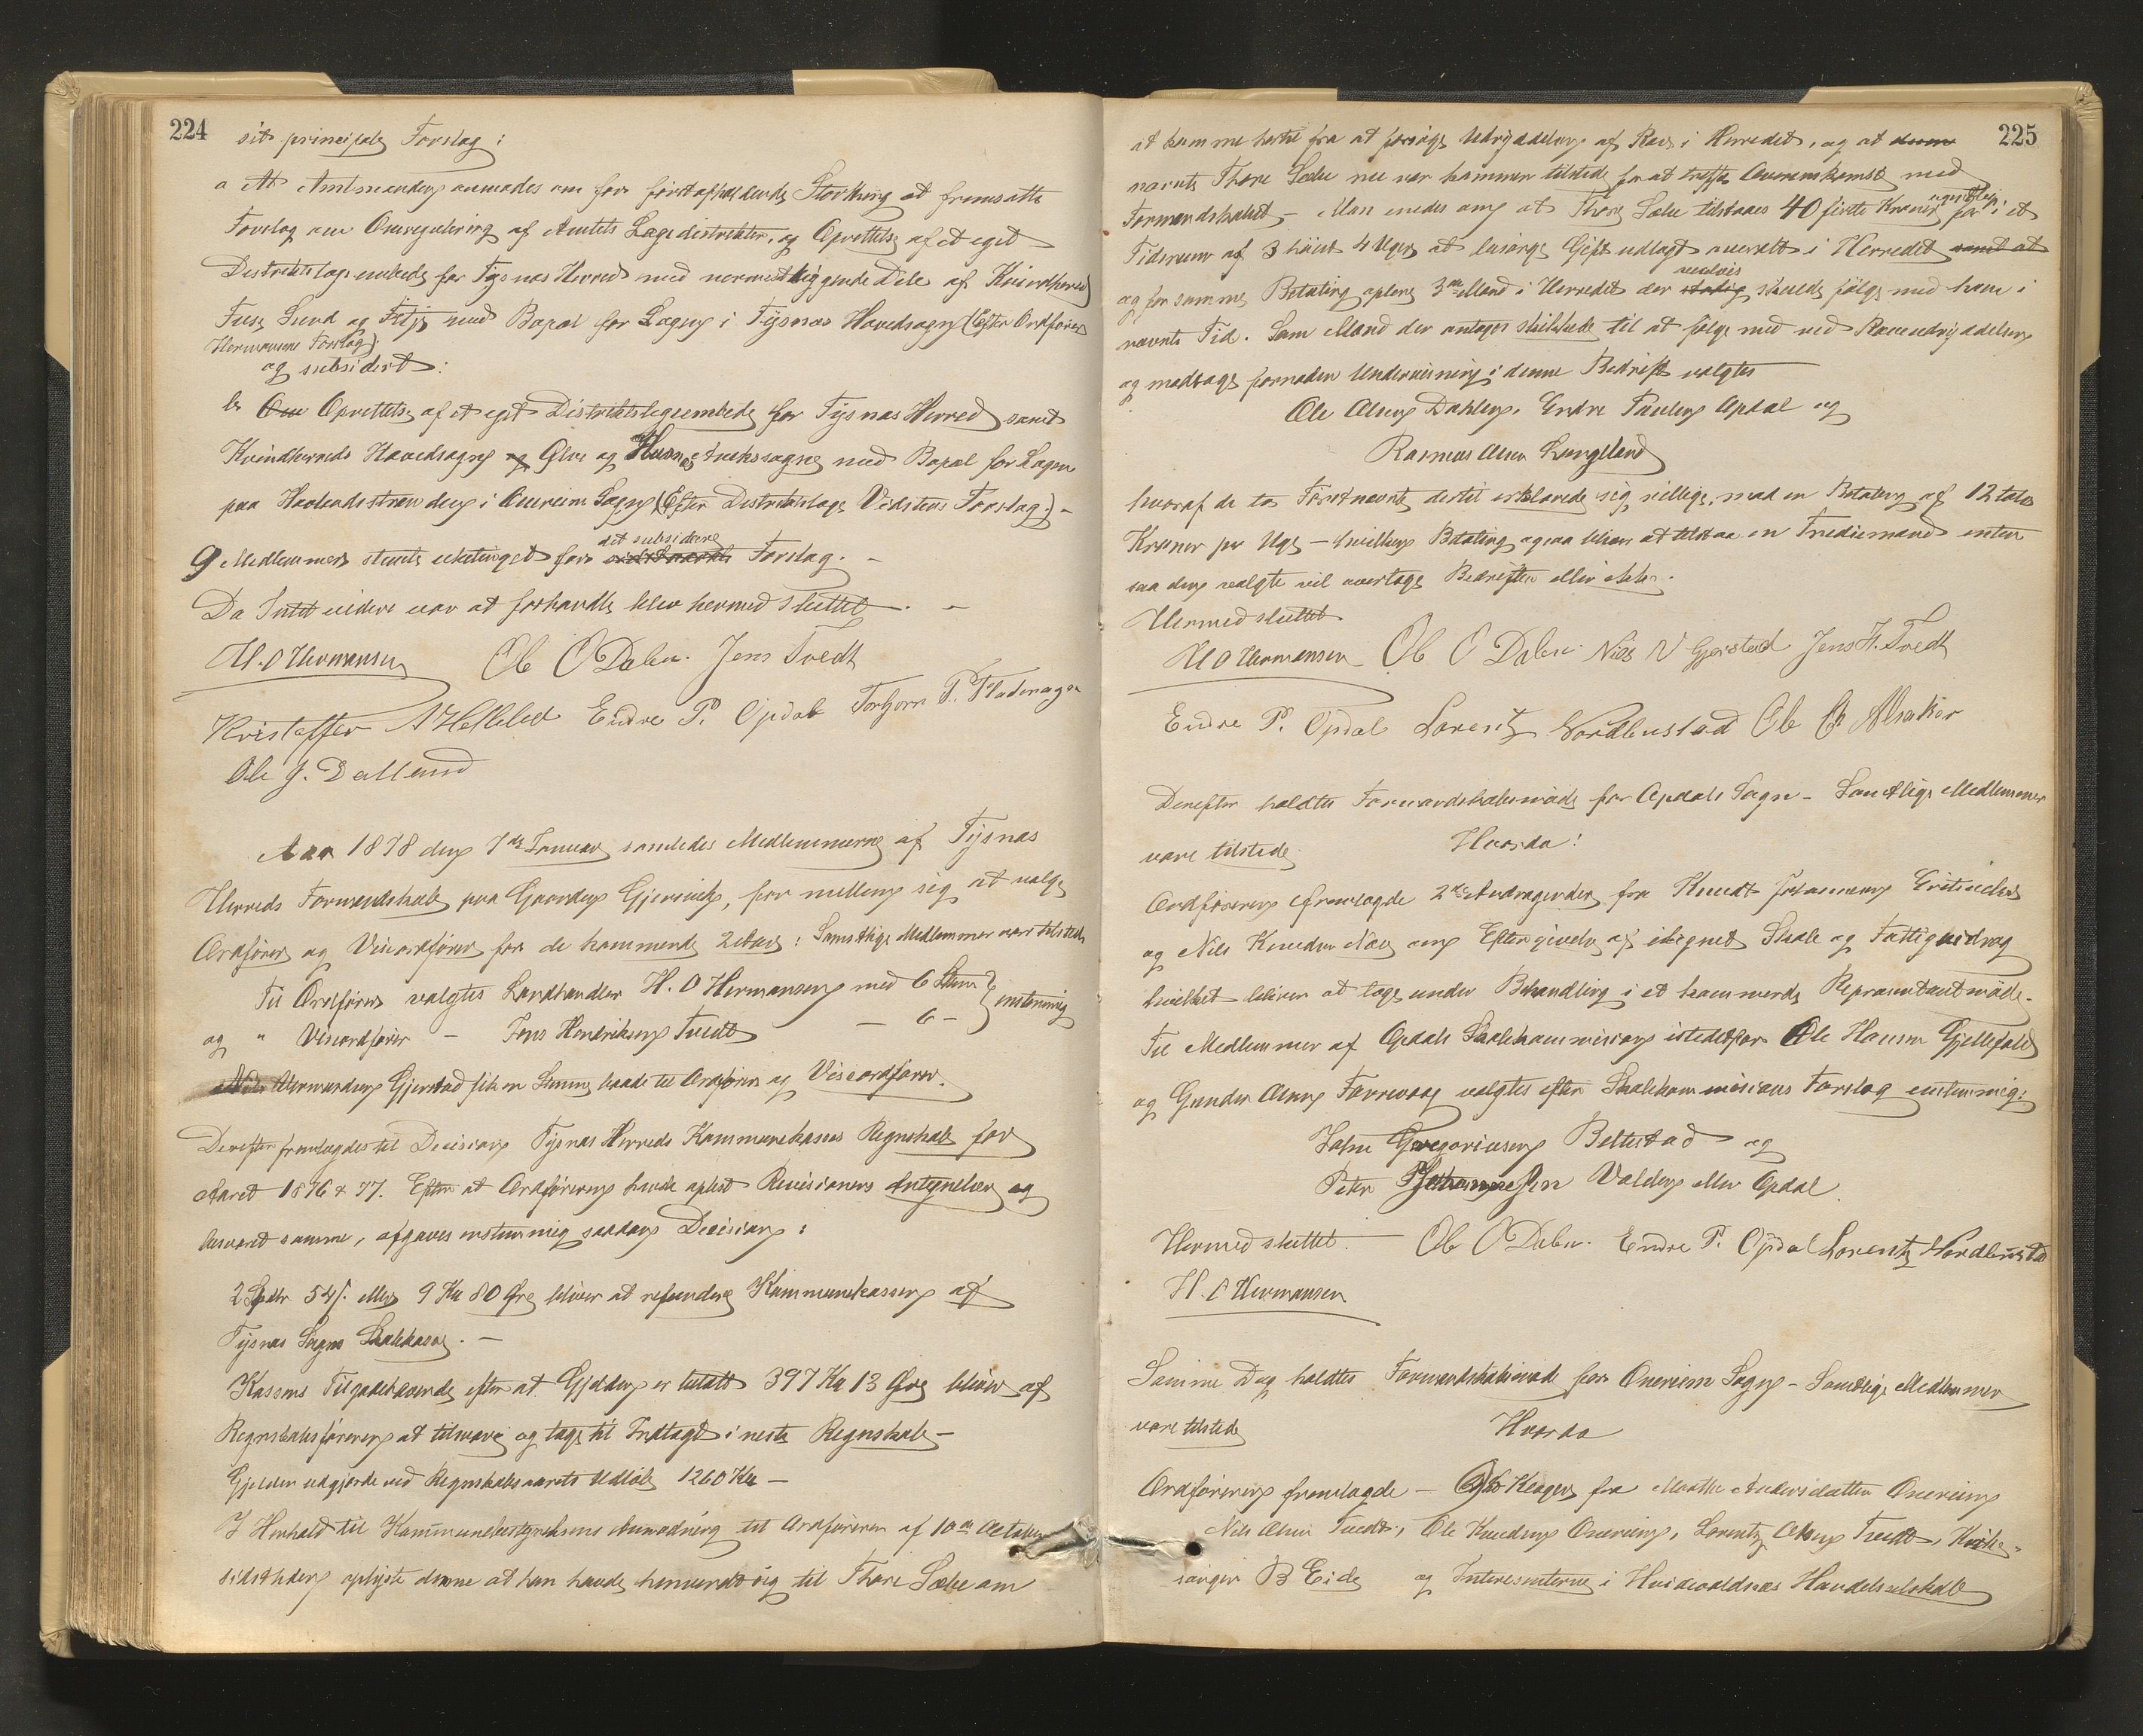 224
sit principale Forslag:
a At Amtmanden anmodes om for förstafholdende Storthing at fremsætte
Forslag om Omregulering af Amtets Lægedistrikter, og Oprettelse af et eget
Distriktslægeembede for Tysnæs Herred med nærmestliggende Dele af Kvindherred
Fuse Sund og Fitje med Bopæl for Lægen i Tysnæs Hovedsogn (Efter Ordförer
Hermansens Forslag).
og subsidert:
b Om Oprettelse af et eget Distriktslægeembede for Tysnæs Herred samt
Kvindherreds Hovedsogn og Ølve og Husnæs Anxsogne med Bopæl for Lægen
paa Haalandsstranden i Onereim Sogn (Efter Distriktslæge Vidsteens Forslag). -
9 Medlemmer stemte ubetinget for sidstnævnte det subsidere Forslag. -
Da Intet videre var at forhandle blev hermed sluttet. -
H. O Hermansen Ole O Dalen. Jens Tvedt
Kristoffer A Helleland Endre P. Opdal Torbjørn T. Fladmagen
Ole J. Dalland
Aar 1878 den 7de Januar samledes Medlemmerne af Tysnæs
Herreds Formandskab paa Gaarden Gjersvik, for mellem sig at vælge
Ordförer og Viceordförer for de kommende 2 Aar: Samtlige Medlemmer var tilstede
Til Ordförer valgtes Landhandler H. O Hermansen med 6 Stem } enstemmig
og " Viseordförer - Jens Henriksen Tvedt - 6 -
Nils Hermandsen Gjerstad fik en Stemme baade til Ordförer og Viseordförer.
Derefter fremlagdes til Decision Tysnæs Herreds Kommunekasses Regnskab for
Aaret 1876 & 77. Efter at Ordföreren havde oplæst Revisionens Antegnelser og
besvaret samme, afgaves enstemmig saadan Decision:
2 Spdlr 54 ß. eller 9 Kr 80 Øre bliver at refundere Kommunekassen af
Tysnæs Sogns Skolekasse. -
Kassens Tilgodehavende efter at Gjelden er betalt 397 Kr 13 Øre bliver af
Regnskabsföreren at tilsvare og tage til Indtægt i neste Regnskab -
Gjelden udgjorde ved Regnskabsaarets Udlöb 1260 Kr -
I Henhold til Kommunebestyrelsens Anmodning til Ordföreren af 10de October
sidstleden oplyste denne at han havde henvendt sig til Thore Sælee om
225
at komme hertil for at forsöge Udryddelsen af Ræv i Herredet, og at denne
nævnte Thore Sælee nu var kommen tilstede for at træffe Overenskomst med
Formandskabet - Man enedes om at Thore Sælee tilstaaes 40 firti Kroner ugentlig for i et
Tidsrum af 3 höist 4 Uger at besörge Gift udlagt overalt i Herredet samt at
og for samme Betaling oplære 3de Mænd i Herredet der stadig vexelvis skulde fölge med ham i
nævnte Tid. Som Mænd der antages skikkede til at fölge med ved Ræveudryddelsen
og modtage fornøden Underviisning i denne Bedrift valgtes
Ole Olsen Dahlen, Endre Paulsen Opdal og
Rasmus Olsen Lungland
hvoraf de to Förstnævnte dertil erklærede sig villige, mod en Betaling af 12 tolv
Kroner pr Uge - hvilken Betaling ogsaa bliver at tilstaa en Trediemand enten
saa den valgte vil overtage Bedriften eller ikke.
Hermed sluttet
H O Hermansen Ole O Dalen. Nils N Gjerstad Jens H. Tvedt
Endre P. Opdal Lorentz Nordbustad Ole O Alsaker
Derefter holdtes Formandskabsmöde for Opdals Sogn - Samtlige Medlemmer
vare tilstede Hvorda:
Ordföreren fremlagde 2de Andragender fra Knudt Johannesen
og Nils Knudsen Næs om Eftergivelse af ilignet Skole og Fattigbidrag
hvilket bliver at tage under Behandling i et kommende Repræsentantmöde.
Til Medlemmer af Opdals Skolekommision istedetfor Ole Hansen Gjellefald
og Gunder Olsen Færrevaag valgtes efter Skolekommisions Forslag enstemmig:
John Gregoriusen Beltestad og
Peter Johannessen Valden eller Opdal.
Hermed sluttet. Ole O Dalen. Endre P. Opdal Lorentz Nordbustad
H. O Hermansen
Samme Dag holdtes Formandskabsmöde for Onereim Sogn - Samtlige Medlemmer
vare tilstede Hvorda
Ordföreren fremlagde - Klager fra Marthe Andersdatter Onereim
Nils Olsen Tvedt, Ole Knudsen Onereim, Lorentz Olsen Tvedt, Kirke-
sanger B Eide og Interesenterne i Hvidevoldnæs Handelselskab